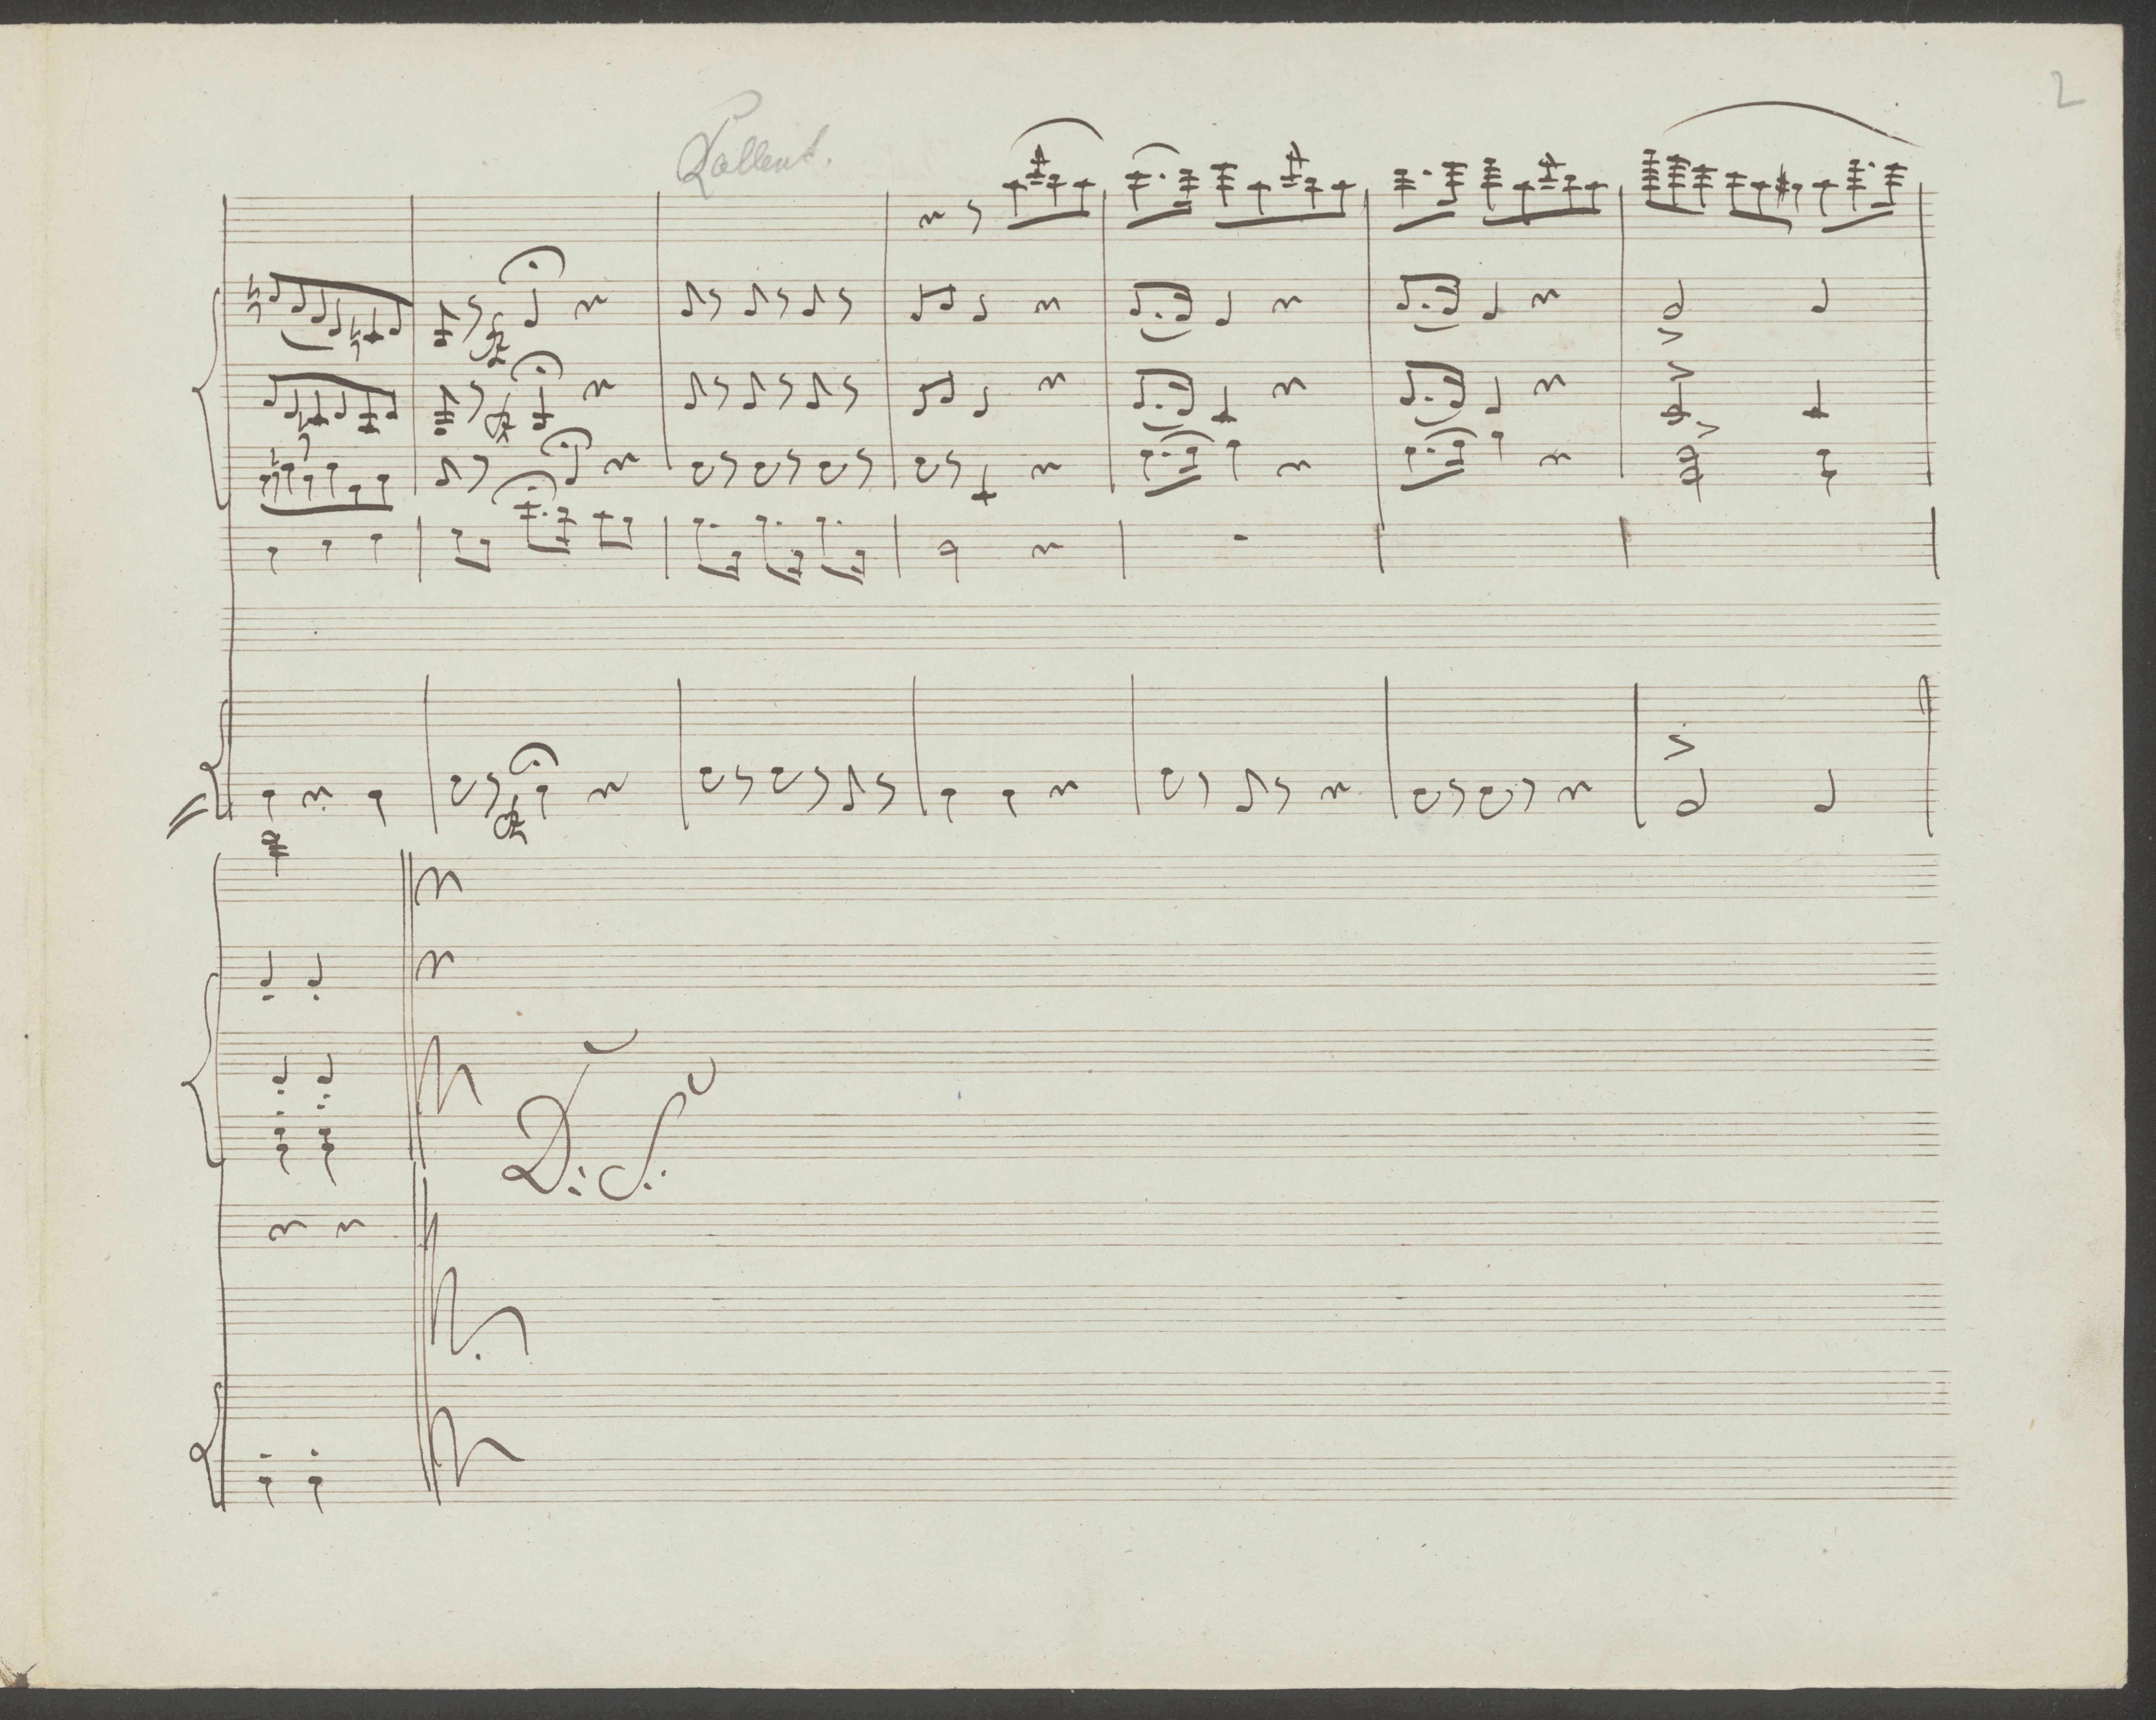 2
Rallent.
D: S: